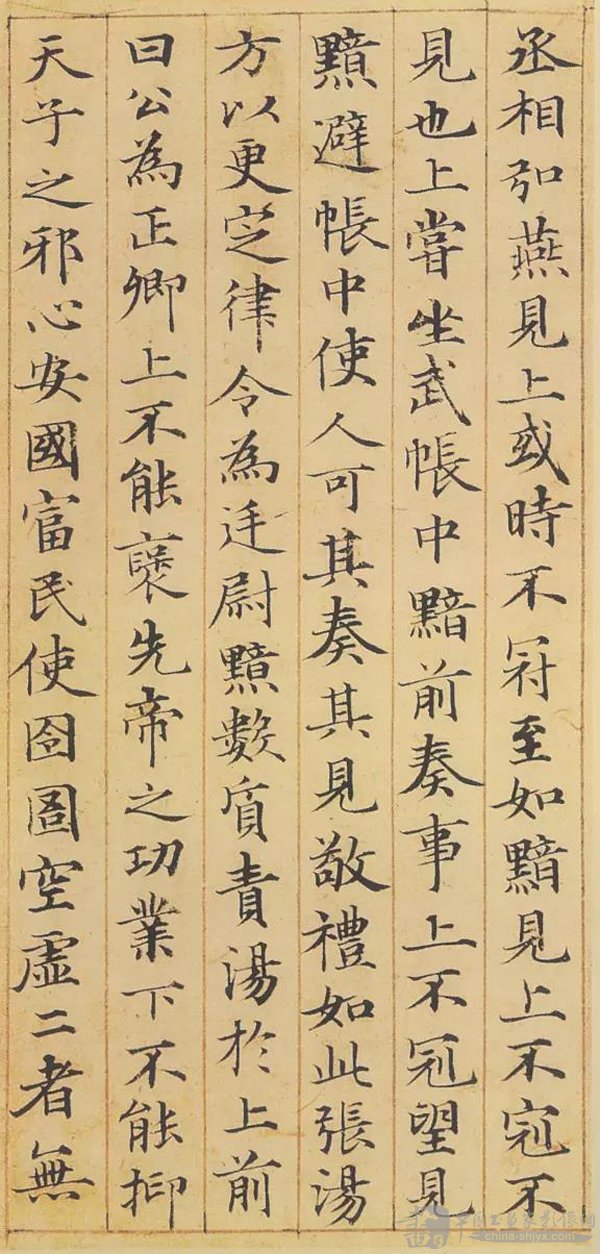 丞相弘燕見上或時不冠至如黯見上不冠不
見也上嘗坐武帳中黯前奏事上不冠望見
黯避帳中使人可其奏其見敬禮如此張湯
方以更定律令為廷尉黯數質責湯於上前
曰公為正卿上不能襃先帝之功業下不能抑
天子之邪心安國富民使囹圄空虛二者無
china-shjyx.com